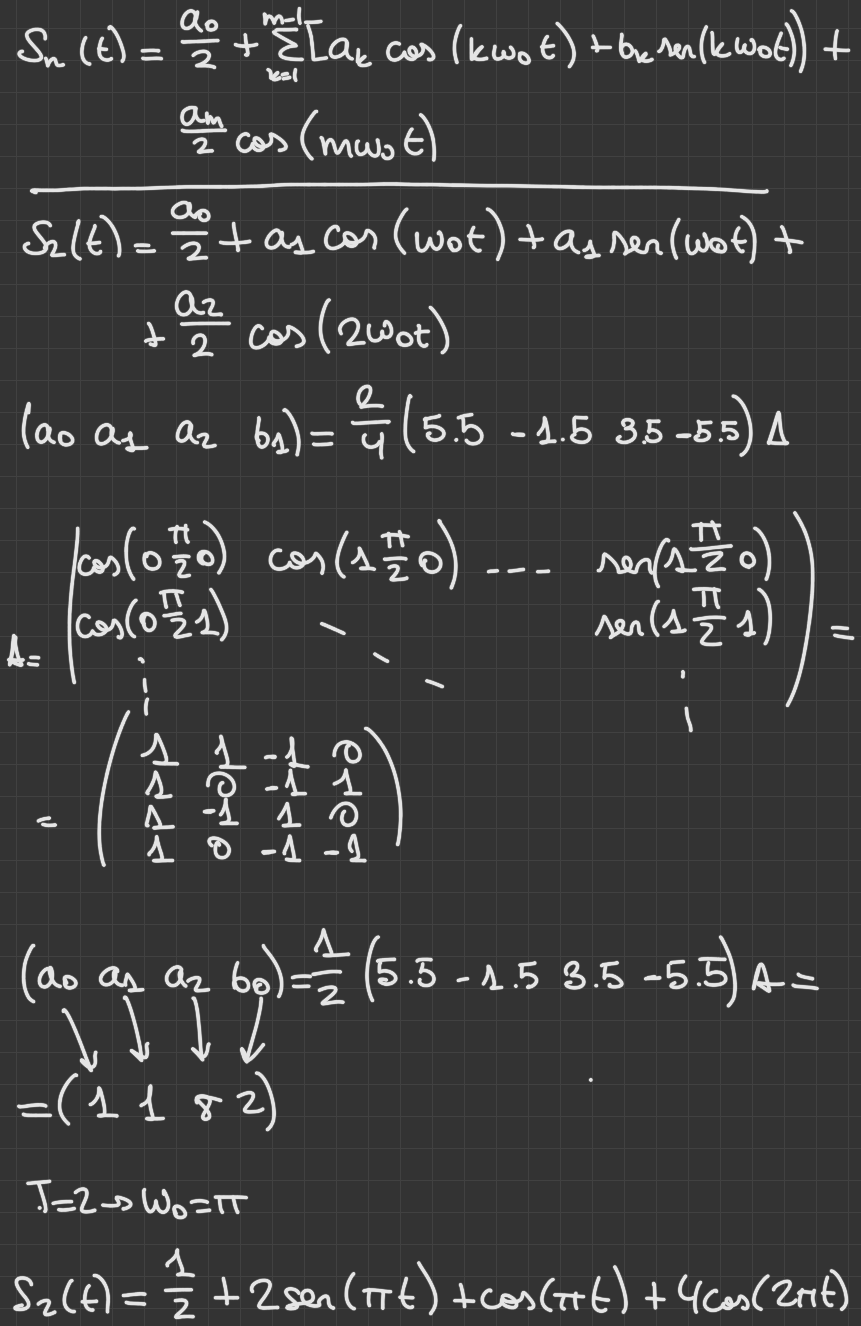 Sn (t) = a0/2 + Σ_{k=1}^{m-1} [ak cos (kω0t) + bk sen(kω0t)) +
am/2 cos (mω0t)
S2(t) = a0/2 + a1 cos (ω0t) + a1 sen(ω0t) +
+ a2/2 cos (2ω0t)
(a0 a1 a2 b1) = 2/4 (5.5 -1.5 3.5 -5.5) A
cos(0 π/2 0) cos(1 π/2 0) --- sen(1 π/2 0)
cos(0 π/2 1) sen(1 π/2 1)
A= =
1 1 -1 0
1 0 -1 1
= 1 -1 1 0
1 0 -1 -1
(a0 a1 a2 b0) = 1/2 (5.5 -1.5 3.5 -5.5) A =
= (1 1 8 2)
T=2 → ω0=π
S2(t) = 1/2 + 2sen(πt) + cos(πt) + 4cos(2πt)